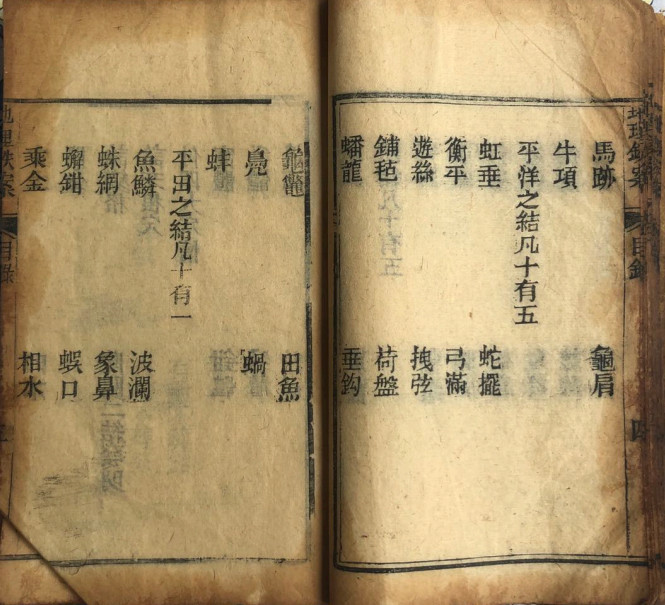 地理鉄案 目錄 四
馬跡 龜肩
牛項
平洋之結凡十有五
虹垂 蛇擺
衡平 弓滿
遊絲 拽弦
鋪毡 荷盤
蟠龍 垂鈎
龜鼈 田魚
鳧 蝸
蚌
平田之結凡十有一
魚鱗 波瀾
蛛網 象鼻
蠏鉗 蜈口
乘金 相水
地理鉄案 目錄